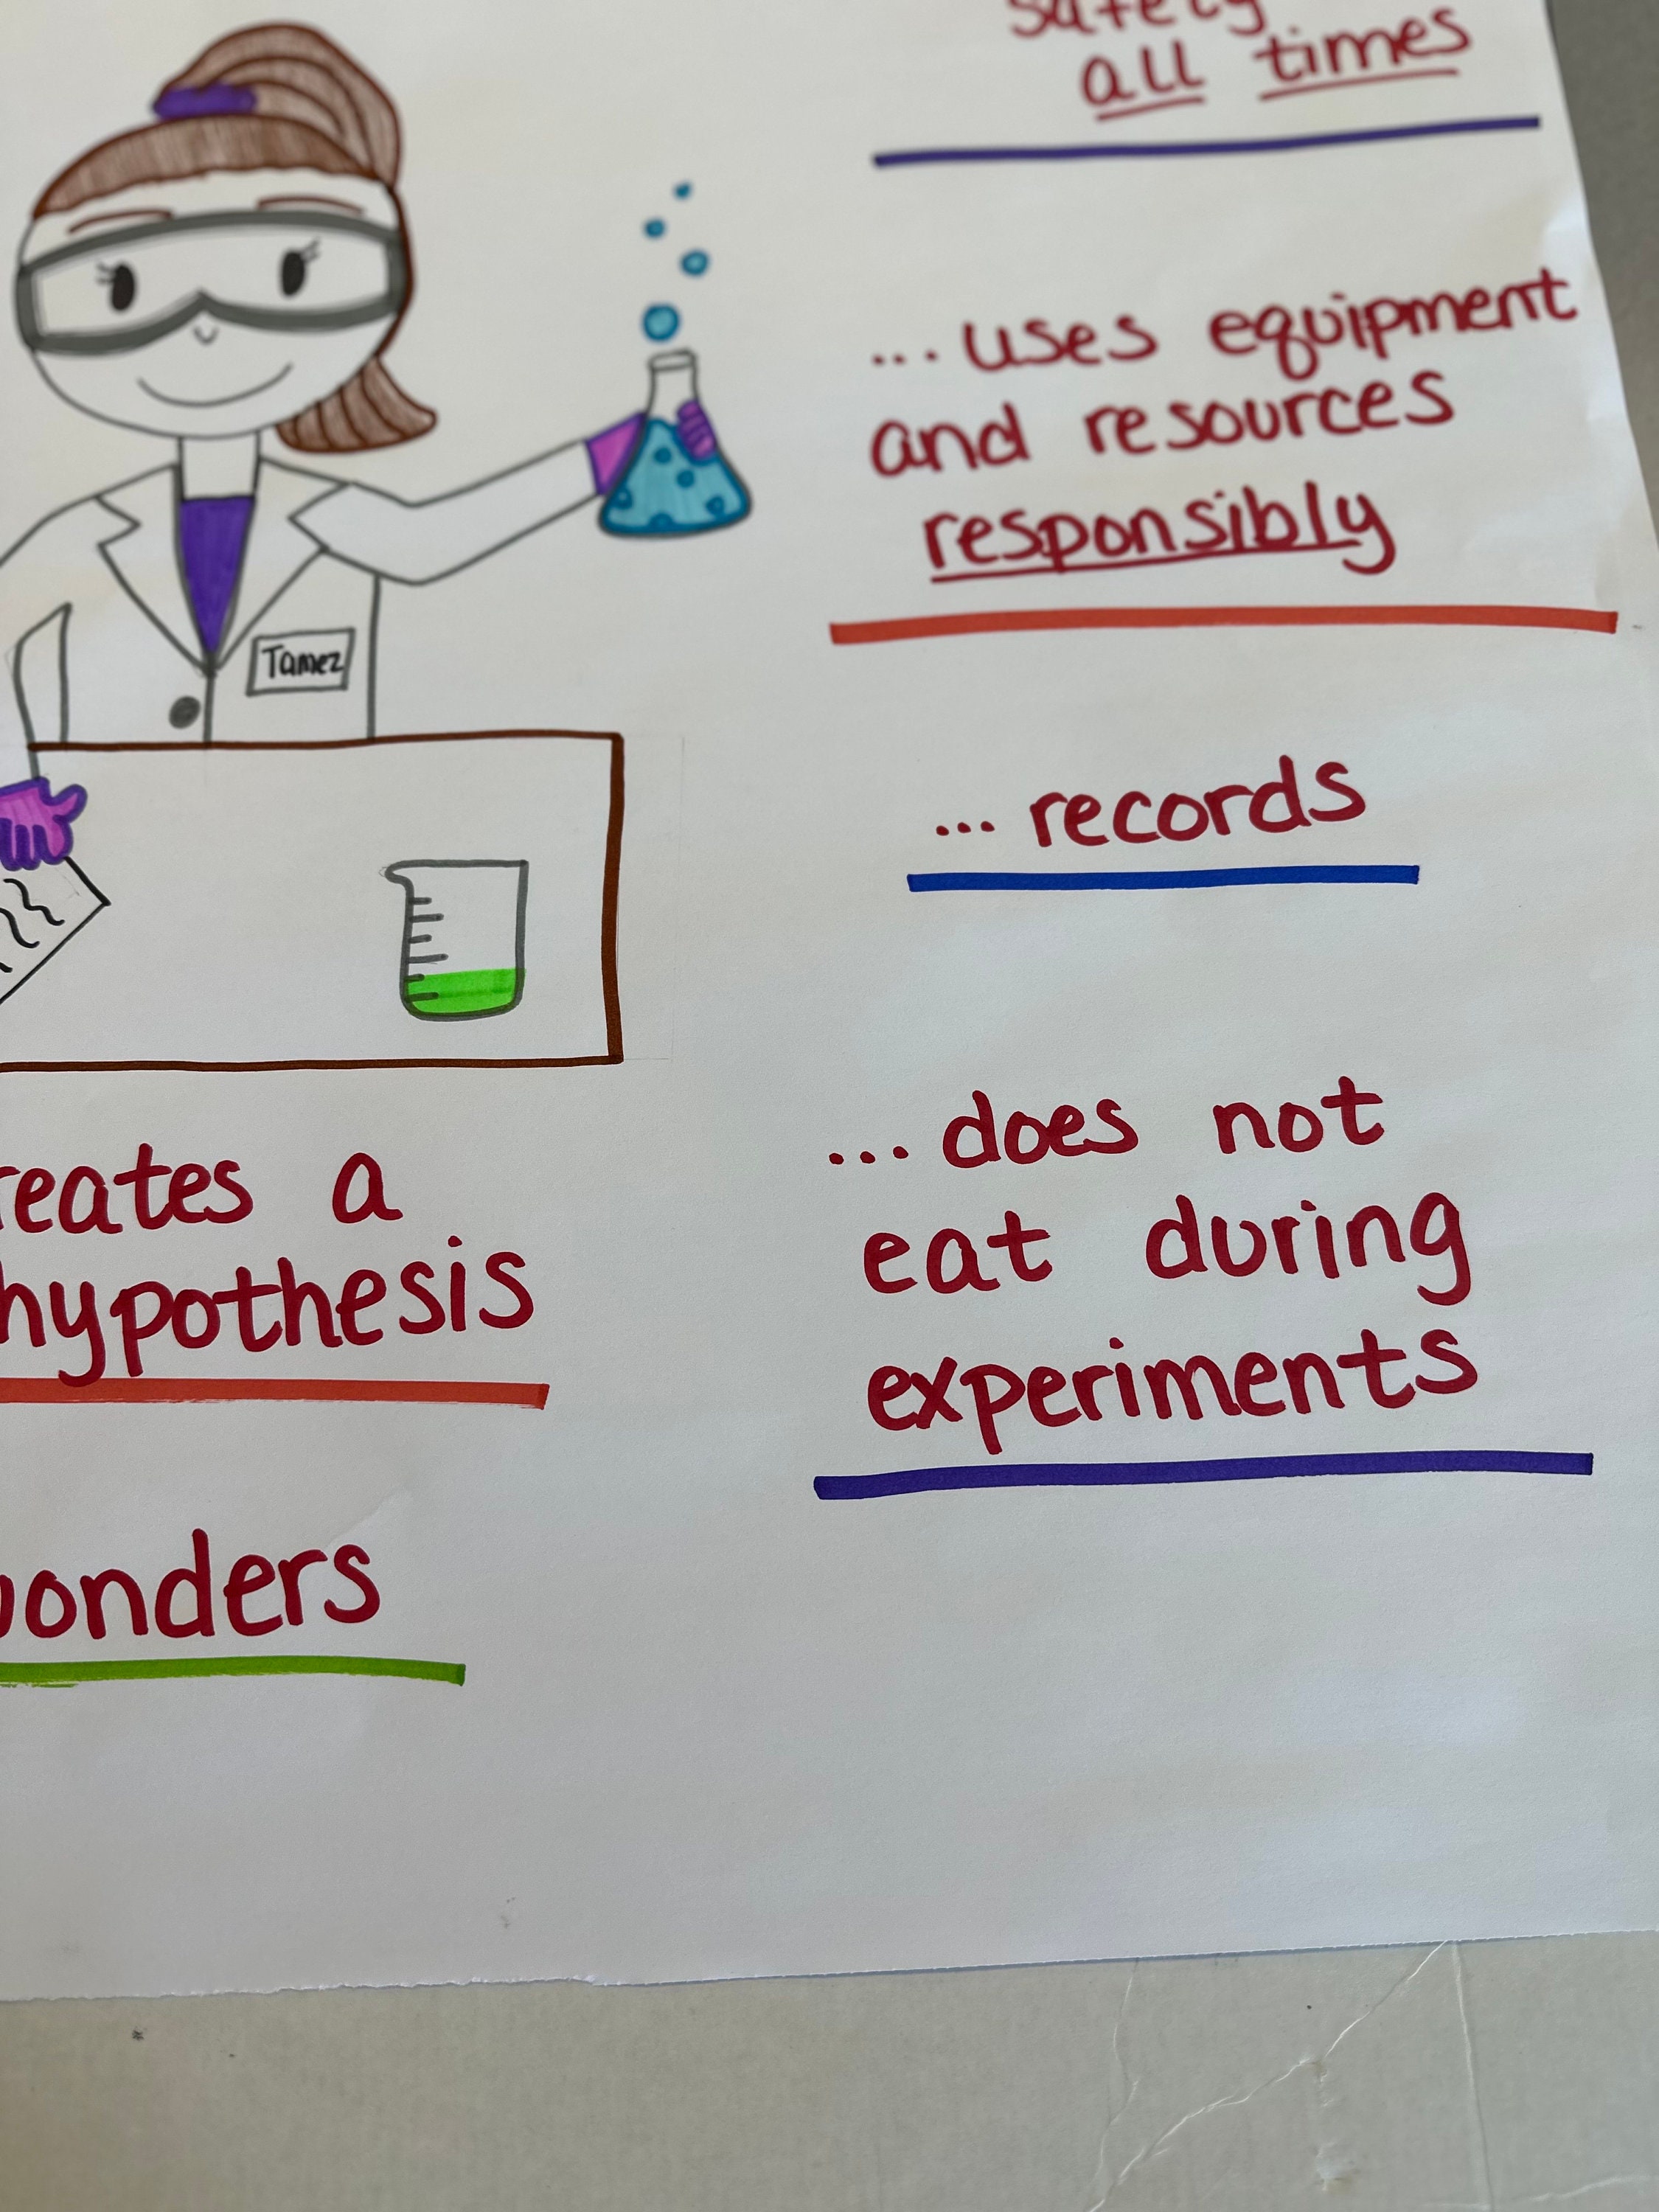 safety
all times
... uses equipment
and resources
responsibly
Tamez
... records
reates a
hypothesis
... does not
eat during
experiments
onders